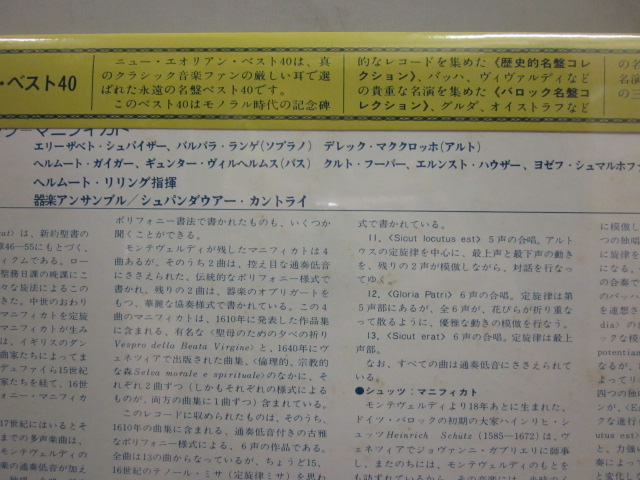 ・ベスト40
ニュー・エオリアン・ベスト40は、真
のクラシック音楽ファンの厳しい耳で選
ばれた永遠の名盤ベスト40です。
このベスト40はモノラル時代の記念碑
的なレコードを集めた《歴史的名盤コレ
クション》、バッハ、ヴィヴァルディなど
の貴重な名演を集めた《バロック名盤コ
レクション》、グルダ、オイストラフなど
の名
名演
の三
マニフィカト
エリーザベト・シュパイザー、バルバラ・ランゲ(ソプラノ) デレック・マククロッホ(アルト)
ヘルムート・ガイガー、ギュンター・ヴィルヘルムス(バス) クルト・フーバー、エルンスト・ハウザー、ヨゼフ・シュマルホファ
ヘルムート・リリング指揮
器楽アンサンブル/シュパンダウアー・カントライ
cat) は、新約聖書の
章46―55にもとづく、
ィクムである。ロー
聖務日課の晩課にこ
々な旋法によるこの
きた。中世のおわり
マニフィカトを定旋
マニフィカトが生み
は、イギリスのダン
曲家たちによってま
デュファイら15世紀
家たちを経て、16世
フォニー・マニフィカ
17世紀にはいるとそ
までの多声楽曲は、
モンテヴェルディの
楽の通奏低音が加え
ポリフォニー書法で書かれたものも、いくつか
聞くことができる。
モンテヴェルディが残したマニフィカトは4
曲あるが、そのうち2曲は、控え目な通奏低音
にささえられた、伝統的なポリフォニー様式で
書かれ、残りの2曲は、器楽のオブリガートを
もつ、華麗な協奏様式で書かれている。この4
曲のマニフィカトは、1610年に発表した作品集
に含まれる、有名な〈聖母のための夕べの祈り
Vespro della Beata Virgine〉と、1640年にヴ
ェネツィアで出版された曲集、〈倫理的、宗教的
な森Selva morale e spirituale〉のなかに、そ
れぞれ2曲ずつ(しかもそれぞれの様式による
ものが、両方の曲集に1曲ずつ)含まれている。
このレコードに収められたものは、そのうち、
1610年の曲集に含まれる、通奏低音付きの古雅
なポリフォニー様式による、6声の作品である。
全曲は13の曲からなっているが、ちょうど15、
16世紀のテノール・ミサ(定旋律ミサ)を思わ
式で書かれている。
11、〈Sicut locutus est〉5声の合唱。アルト
ウスの定旋律を中心に、最上声と最下声の動き
を、残りの2声が模倣しながら、対話を行なっ
てゆく。
12、〈Gloria Patri〉6声の合唱。定旋律は第
5声部にあるが、全6声が、花びらが折り重な
って散るように、優雅な動きの模倣を行なう。
13、〈Sicut erat〉6声の合唱。定旋律は最上
声部。
なお、すべての曲は通奏低音にささえられて
いる。
●シュッツ：マニフィカト
モンテヴェルディより18年あとに生まれた、
ドイツ・バロックの初期の大家ハインリヒ・シ
ュッツHeinrich Schütz (1585―1672)は、ヴ
ェネツィアでジョヴァンニ・ガブリエリに師事
し、またのちには、モンテヴェルディのもとを
に模
つの独唱
に旋律を
になる。
の合奏で
のバック
を連想さ
dia〉の
ックな模
potentiam
なるが、
よってり
四つの独
ンが、く
utus est〉